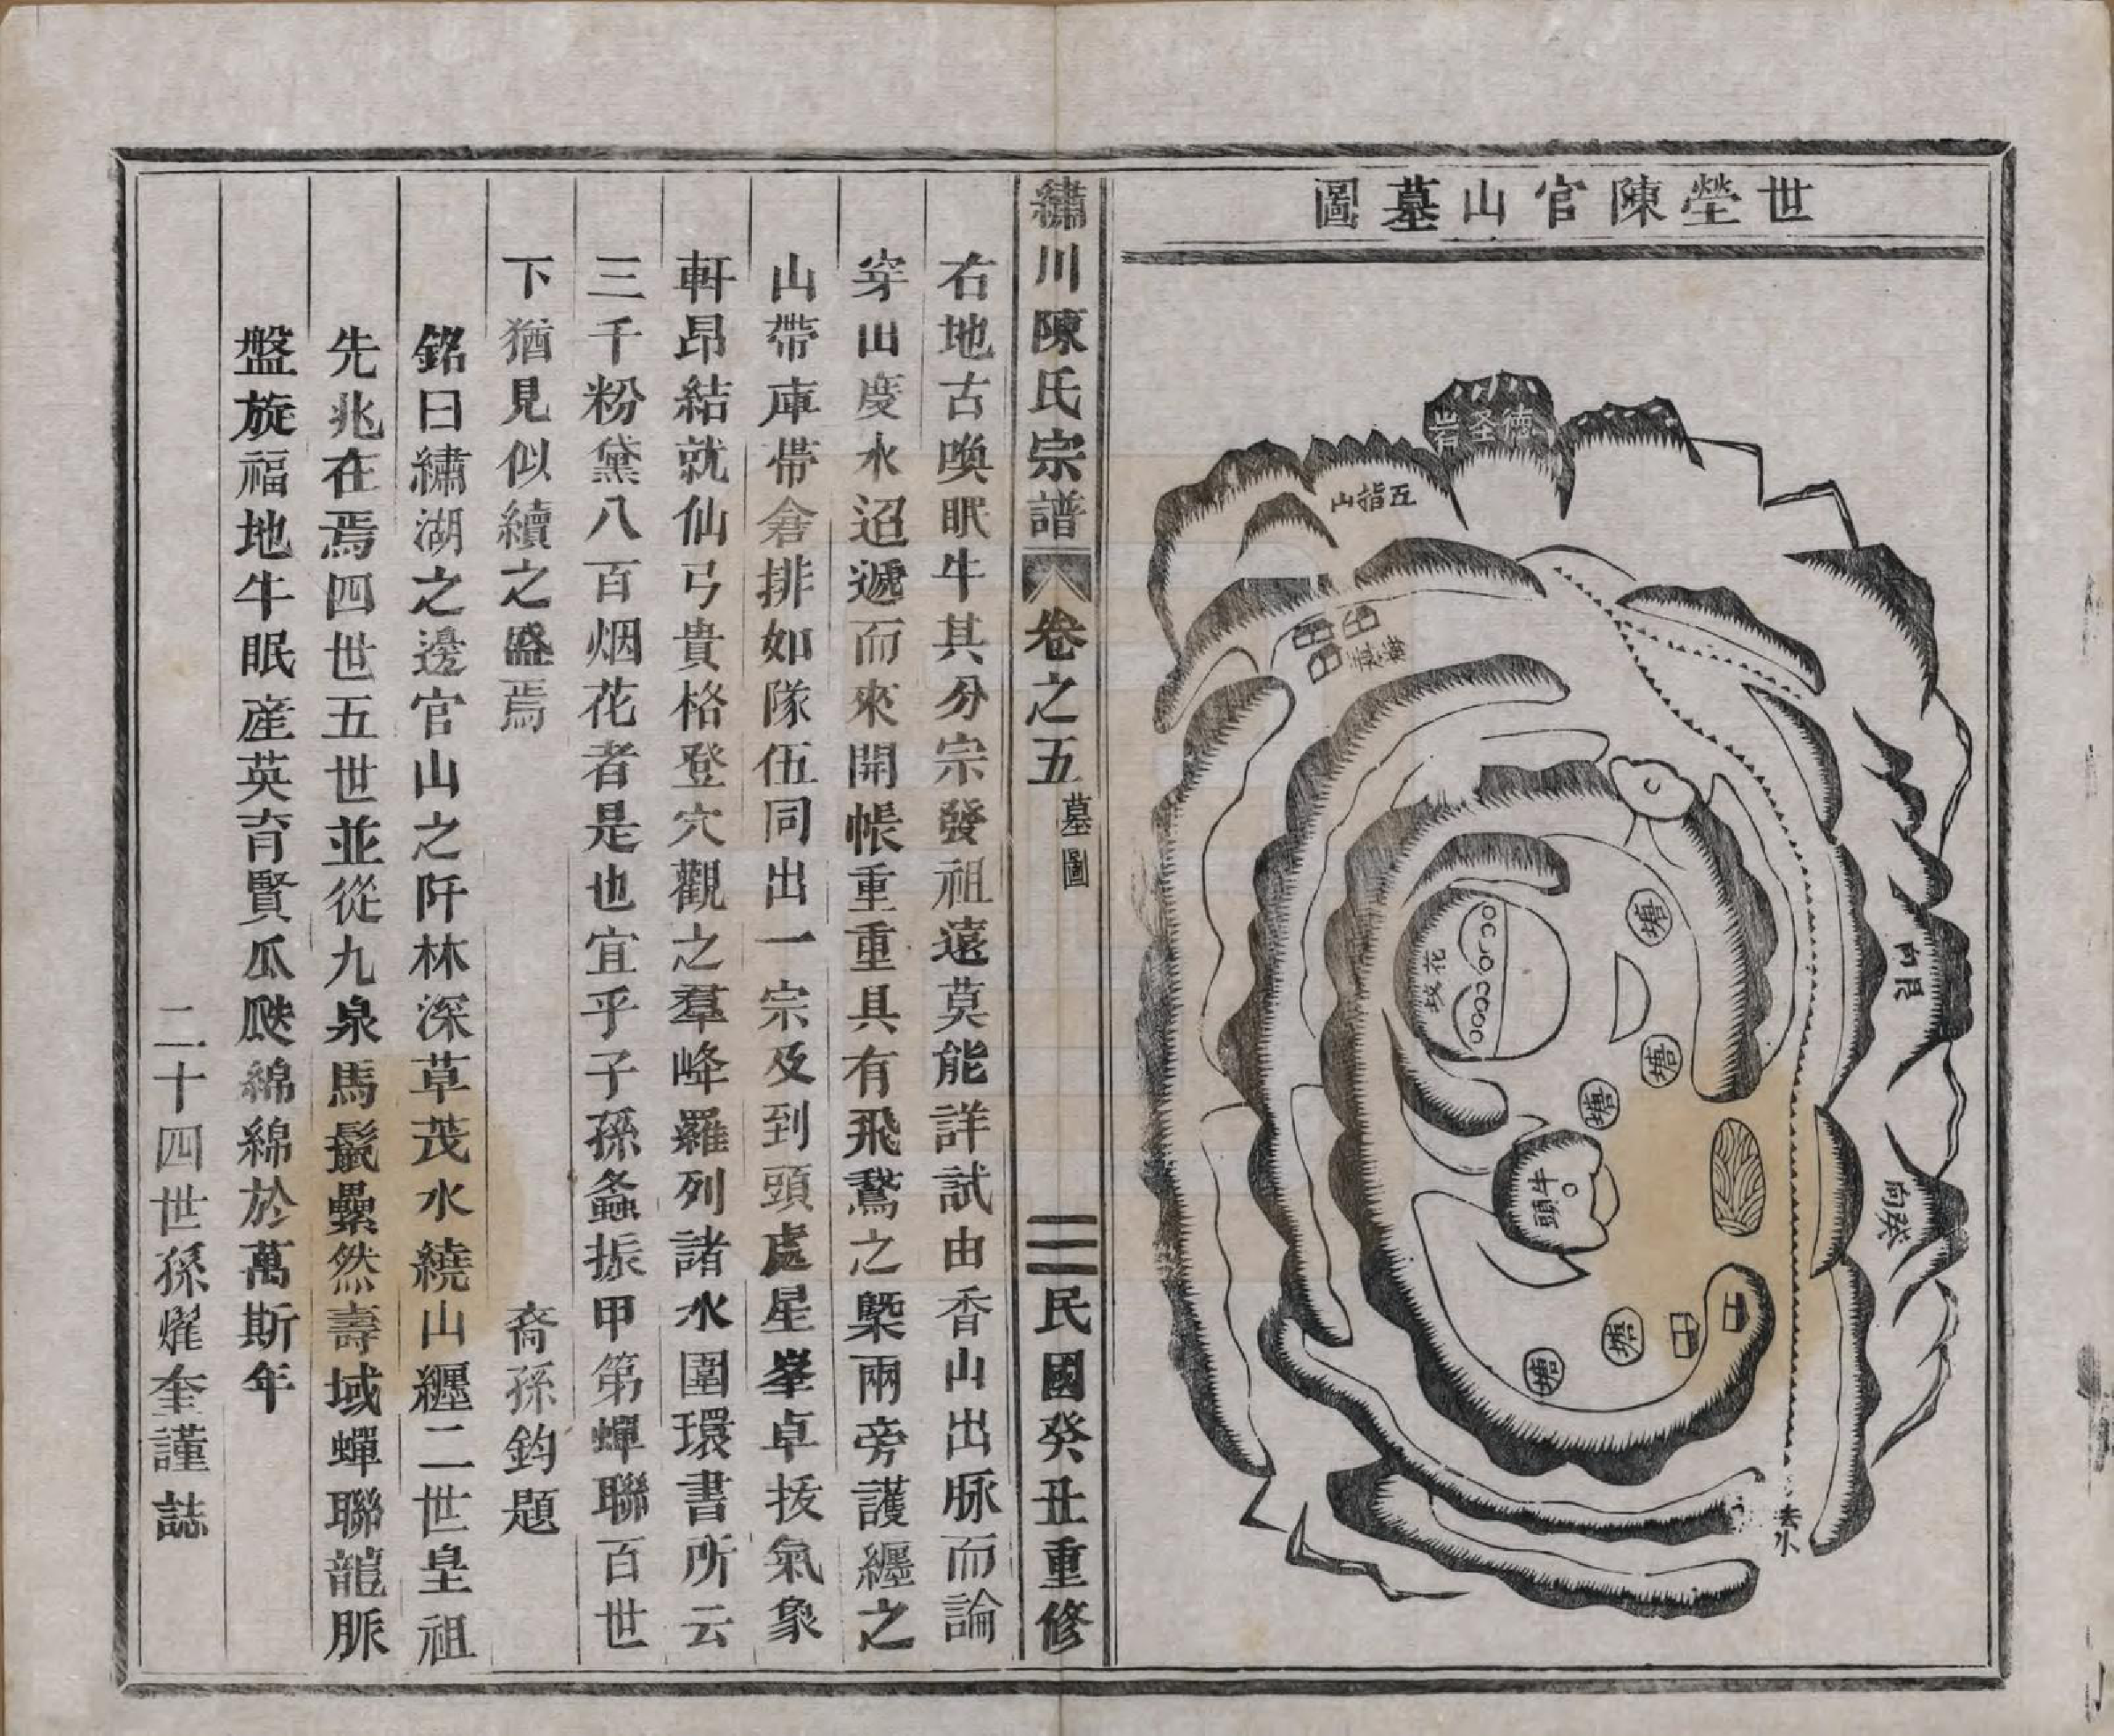 世塋陳官山墓圖
德圣岩
五指山
向艮
向癸
花坟
牛頭
塘
塘
塘
塘
塘
去水
繡川陳氏宗譜
卷之五
墓圖
三
民國癸丑重修
右地古喚眠牛其分宗發祖遠莫能詳試由香山出脉而論
穿田度水迢遞而來開帳重重具有飛鵞之槩兩旁護纒之
山帶庫帶倉排如隊伍同出一宗及到頭處星峯卓拔氣象
軒昂結就仙弓貴格登穴觀之羣峰羅列諸水圍環書所云
三千粉黛八百烟花者是也宜乎子孫螽振甲第蟬聯百世
下猶見似續之盛焉
裔孫鈞題
銘曰繡湖之邊官山之阡林深草茂水繞山纒二世皇祖
先兆在焉四世五世並從九泉馬鬣纍然壽域蟬聯龍脈
盤旋福地牛眠産英育賢瓜瓞綿綿於萬斯年
二十四世孫燿奎謹誌